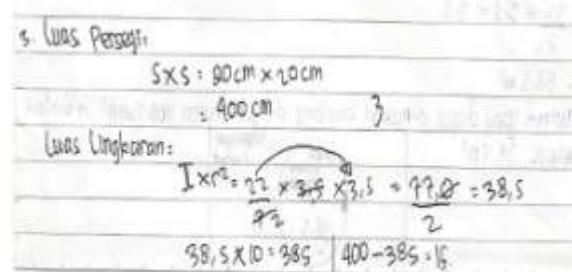 3. Luas Persegi:
SxS = 20cm x 20cm
= 400 cm
Luas Lingkaran:
π x r² = 22/7 2 x 3,5 x 3,5 = 77,0/2 = 38,5
38,5 x 10 = 385 | 400 - 385 = 15